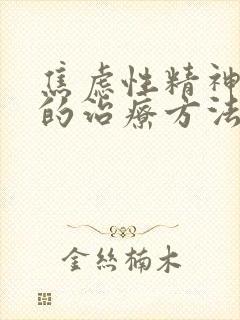 焦虑性精神
的治疗方法
金丝楠木